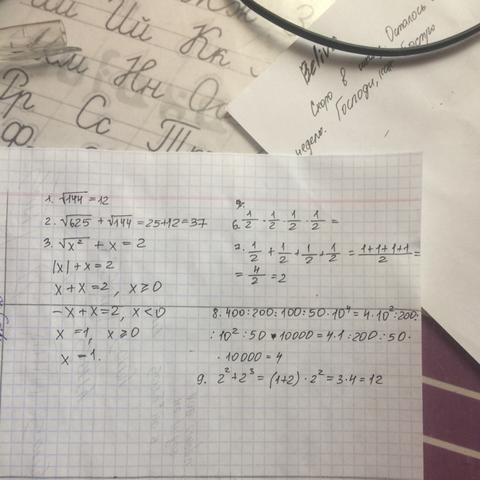 Ий
Кк
Нн
Рр
Сс
Believe
Скоро в
Осталось
неделю.
Господи,
1. √144 = 12
2. √625 + √144 = 25+12 = 37
3. √x² + x = 2
|x| + x = 2
x + x = 2, x ≥ 0
-x + x = 2, x < 0
x = 1, x ≥ 0
x = 1.
6. 1/2 · 1/2 · 1/2 · 1/2 =
7. 1/2 + 1/2 + 1/2 + 1/2 = (1+1+1+1)/2 =
= 4/2 = 2
8. 400:200:100:50·10⁴ = 4·10²:200:
:10²:50·10000 = 4·1:200:50·
·10000 = 4
9. 2² + 2³ = (1+2)·2² = 3·4 = 12